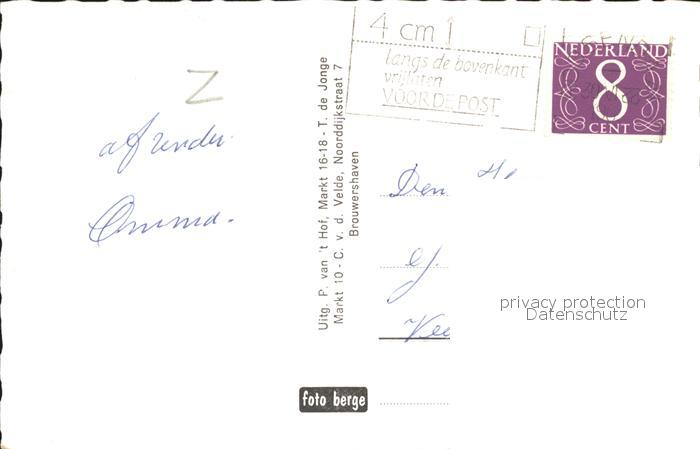 4 cm
langs de bovenkant
vrijlaten
VOOR DE POST
NEDERLAND
8
CENT
Z
afzender.
Omma.
Uitg. P. van 't Hof, Markt 16-18 - T. de Jonge
Markt 10 - C. v. d. Velde, Noorddijkstraat 7
Brouwershaven
Den H
privacy protection
Datenschutz
foto berge